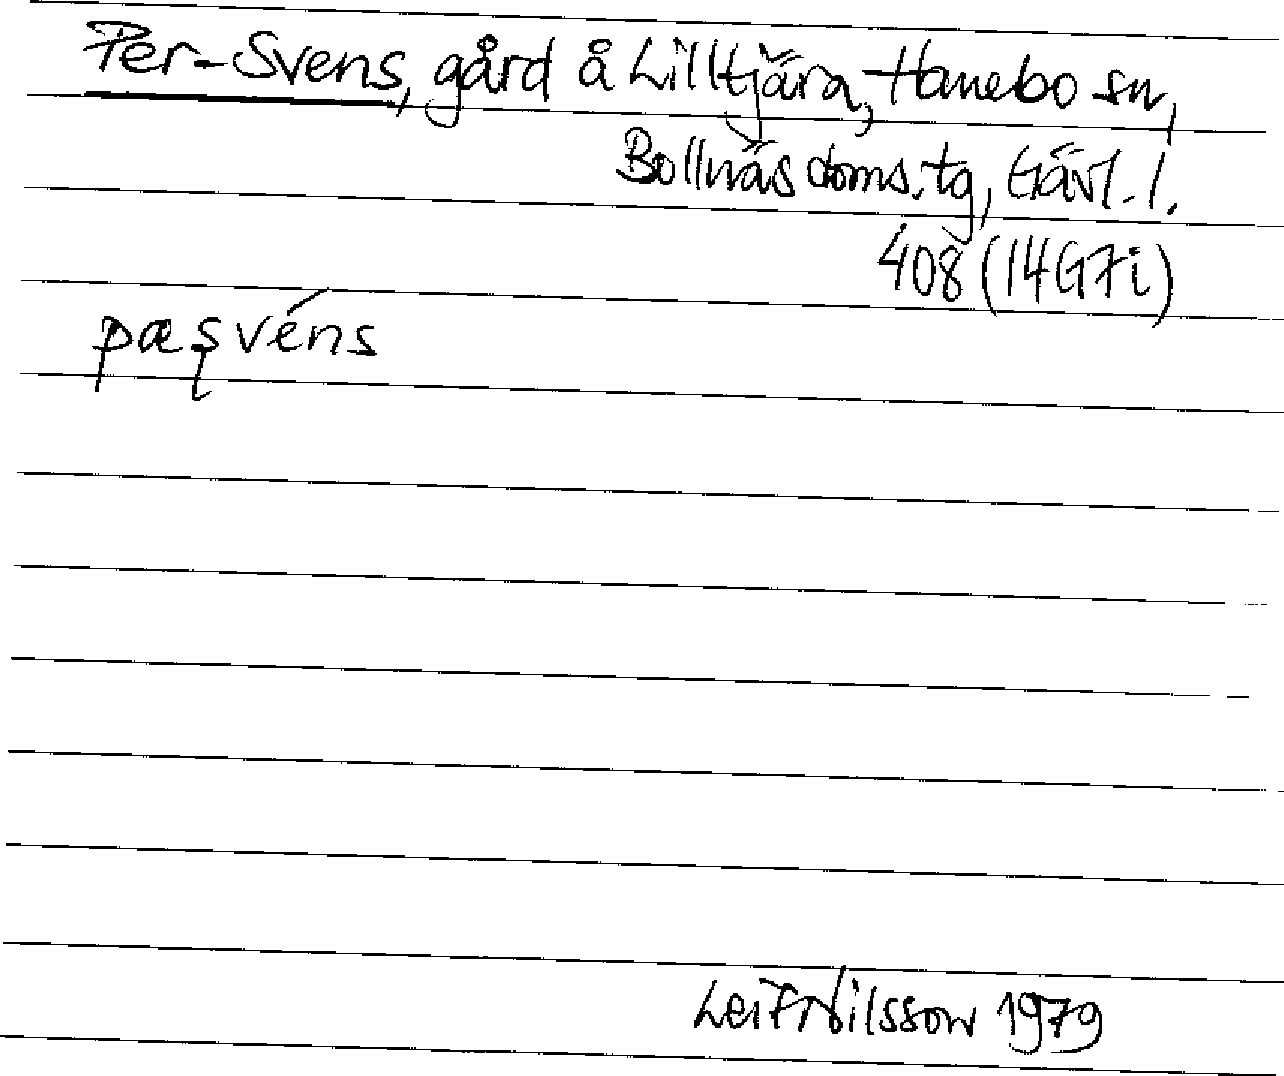 Per-Svens, gård å Lilltjära, Hanebo sn,
Bollnäs doms.tg, Gävl. l.
408 (14G7i)
pæʂvéns
Leif Nilsson 1979